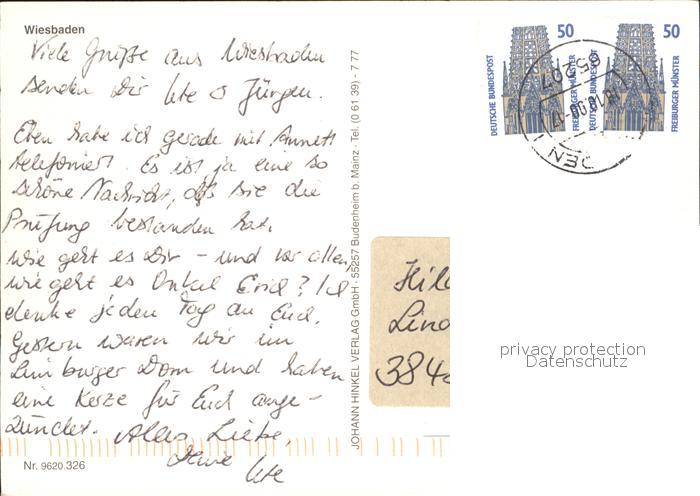 Wiesbaden
Viele Grüße aus Wiesbaden
senden Dir Ute & Jürgen.
Eben habe ich gerade mit Annett
telefoniert. Es ist ja eine so
schöne Nachricht, daß sie die
Prüfung bestanden hat.
wie geht es Dir - und vor allem,
wie geht es Onkel Erich? Ich
denke jeden Tag an Euch.
Gestern waren wir im
Limburger Dom und haben
eine Kerze für Euch ange-
zündet. Alles Liebe,
Deine Ute
Nr. 9620.326
JOHANN HINKEL VERLAG GmbH · 55257 Budenheim b. Mainz · Tel. (0 61 39) - 7 77
DEUTSCHE BUNDESPOST
50
FREIBURGER MÜNSTER
DEUTSCHE BUNDESPOST
50
FREIBURGER MÜNSTER
DEN
Hil
Lind
384
privacy protection
Datenschutz